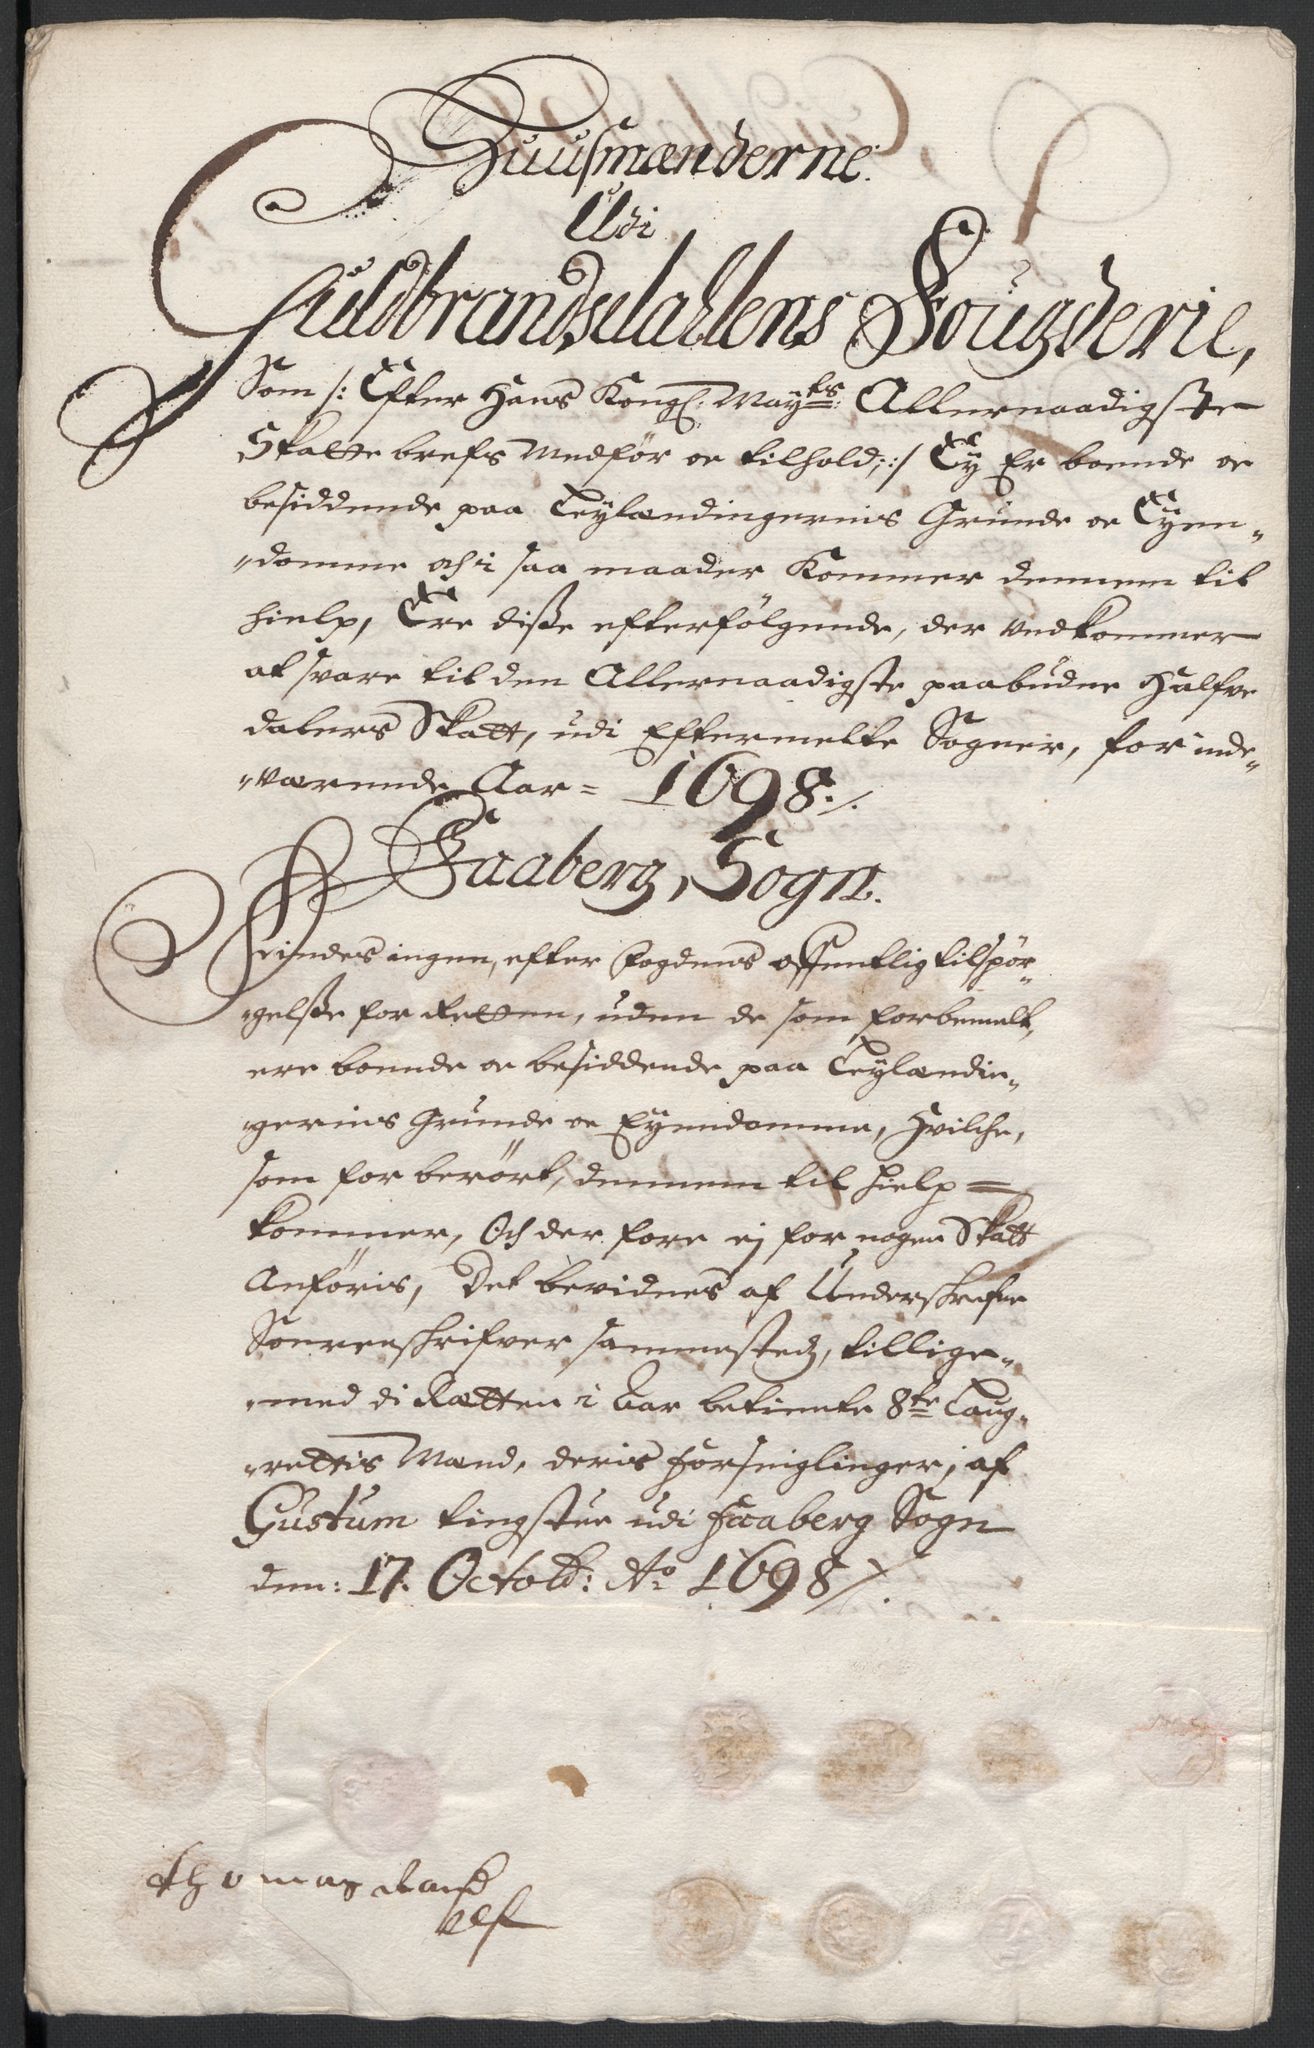 Huusmænderne
Udi
Guldbrandsdahlens Fougderie,
Som /: Efter Hans Kongl: Mayts: Allernaadigste
Skatte brefs Medför oc tilhold; :/ Ey Er boende oc
besiddende paa Leylændingernis Grunde oc Eyen-
-domme och i saa maader Kommer dennem til
hielp, Ere disse efterfölgende, der vedkommer
at svare til den Allernaadigste paabudne Halfve
dalers Skatt, udi Eftermelte Sogner, for inde-
-værende Aar = 1698 ./.
Faaberg Sogn.
Findes ingen, efter fogdens offentlig tilspör-
-gelsse for Retten, uden de som forbemelt,
ere boende oc besiddende paa Leylændin-
gernis Grunde oc Eyendomme, Hvilche,
som for berört, dennem til hielp =
kommer, Och der fore ej for nogen Skatt
Anföris, Det bevidnes af Underschrefne
Sorenschrifver sammesteds, tillige-
-med di Rætten i Aar betiente 8te Laug-
-rettis Mænd, deris forseiglinger, af
Gustum tingstue udi Faaberg Sogn
den: 17. Octobr: Ao 1698 /.
Thomas